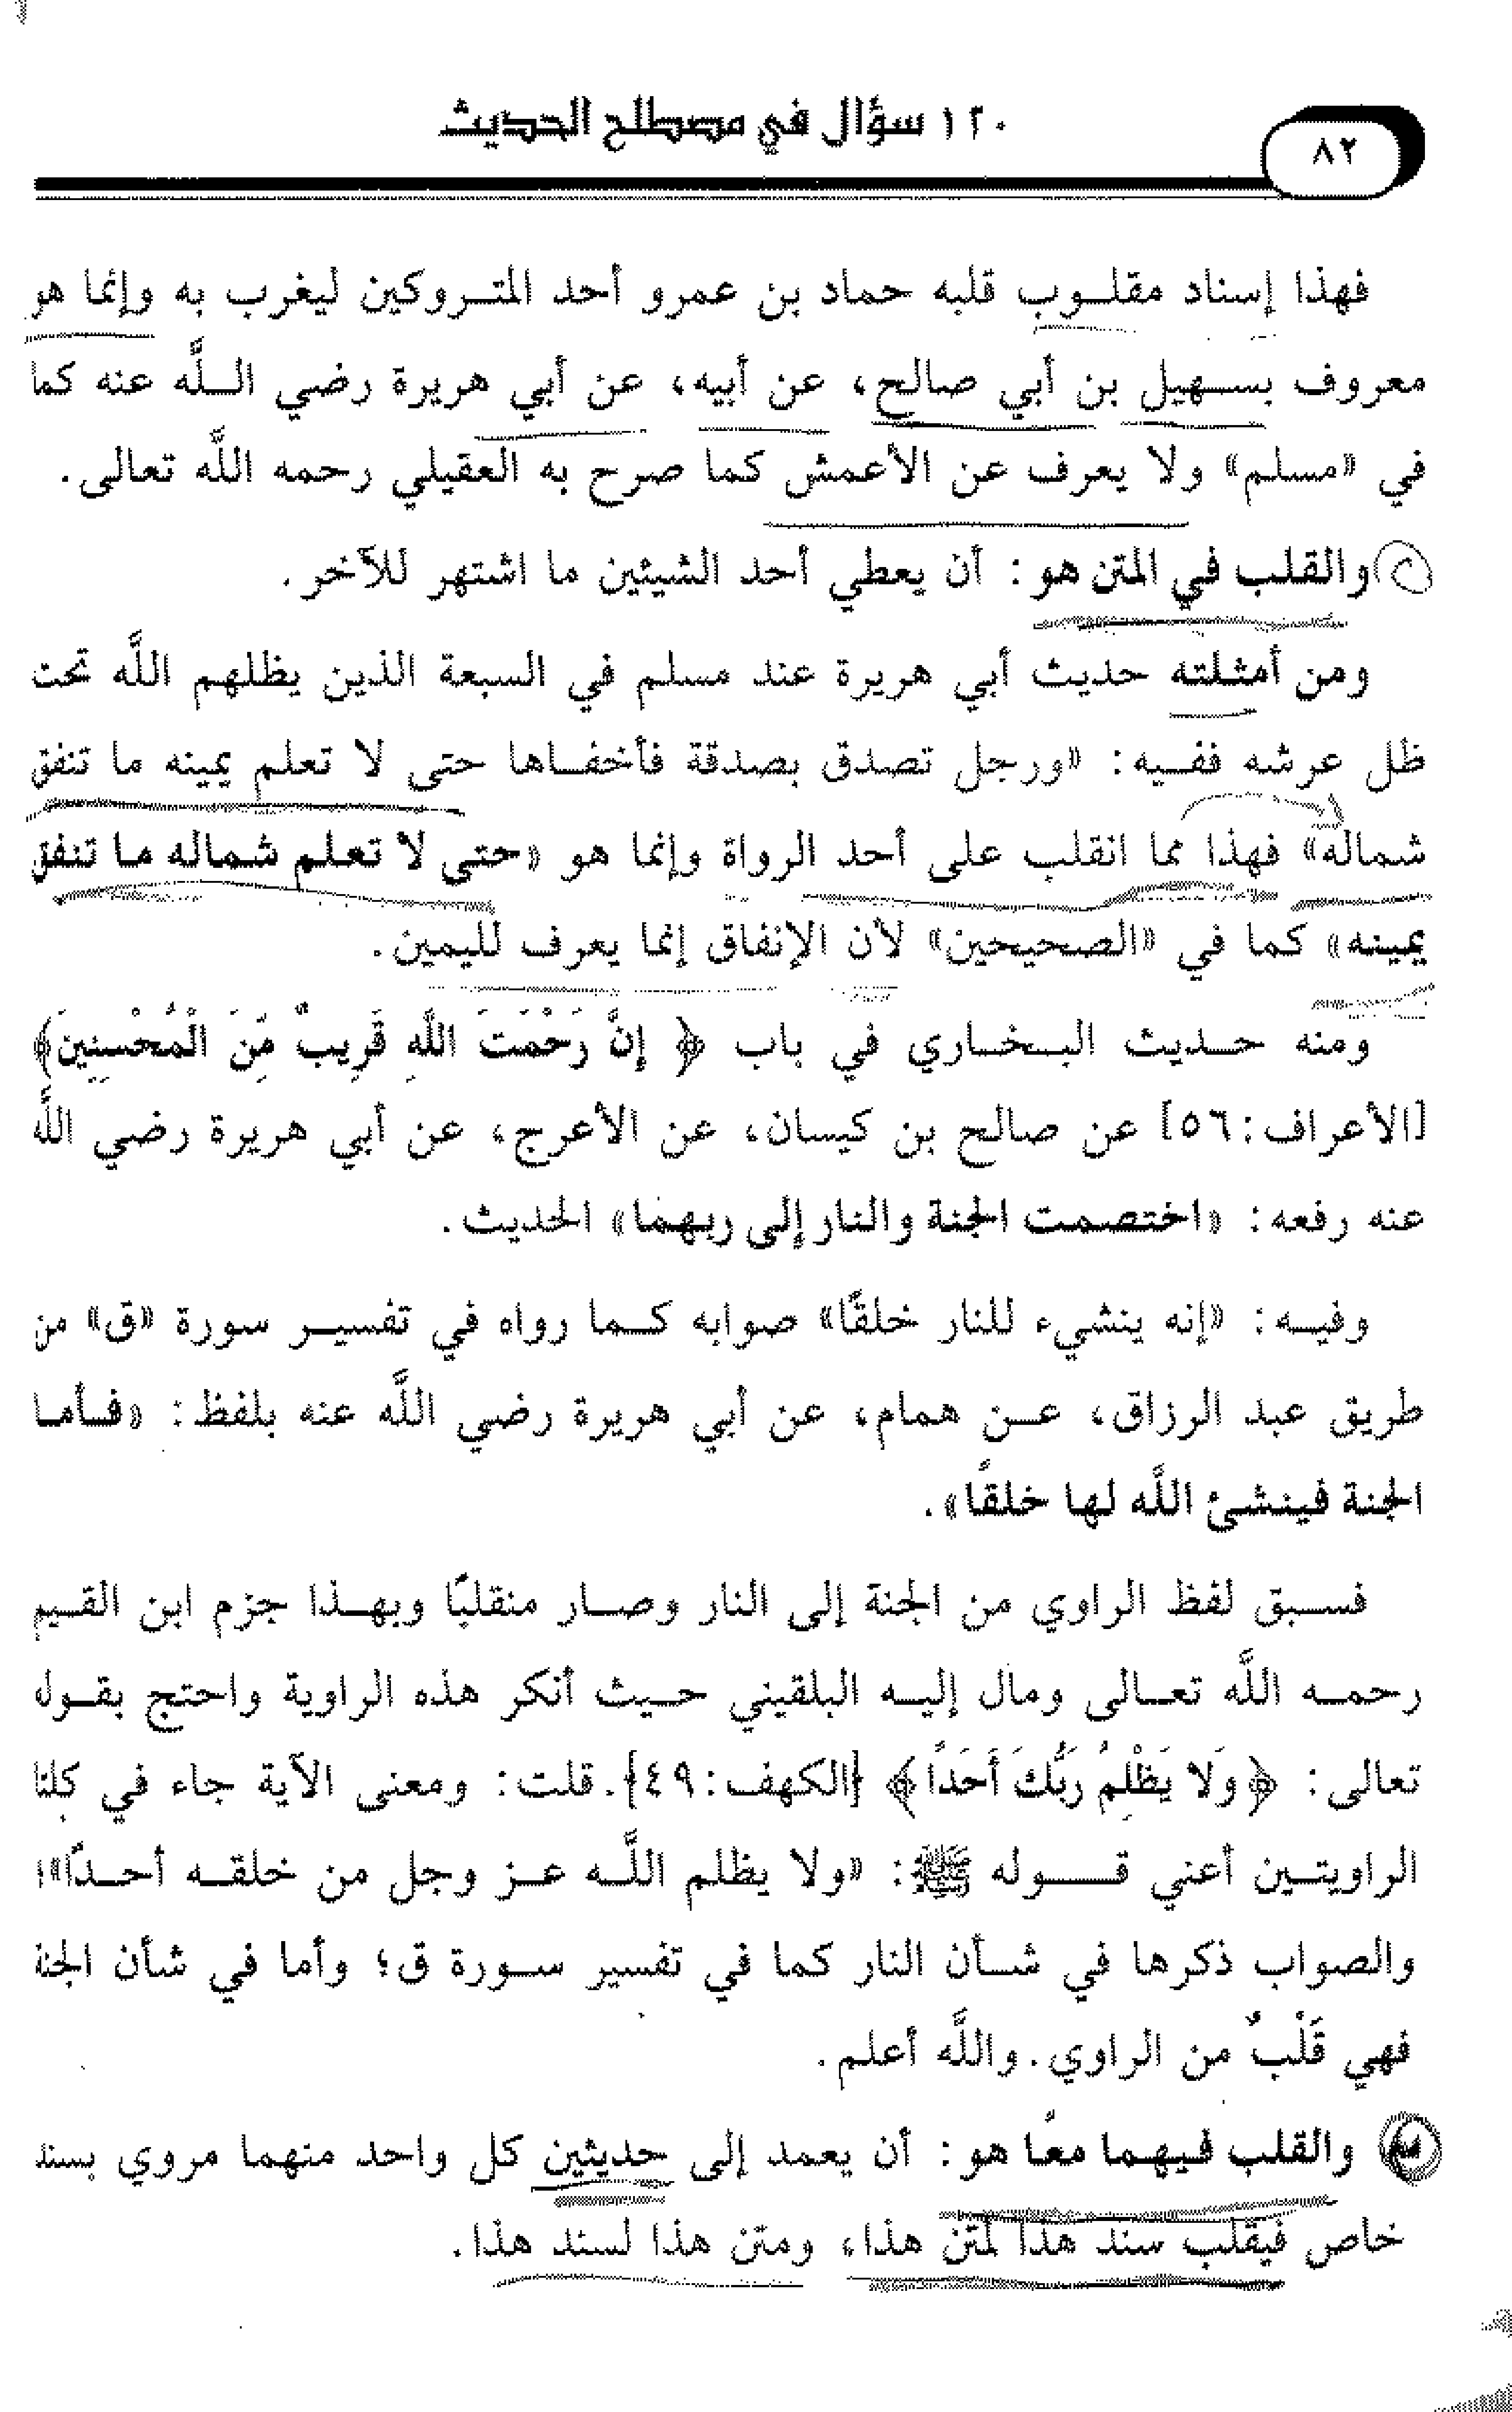 ١٢٠ سؤال في مصطلح الحديث
٨٢
فهذا إسناد مقلـوب قلبه حماد بن عمرو أحد المتـروكين ليغرب به وإنما هو
معروف بسـهيل بن أبي صالح، عن أبيه، عن أبي هريرة رضي اللَّه عنه كما
في «مسلم» ولا يعرف عن الأعمش كما صرح به العقيلي رحمه اللَّه تعالى.
والقلب في المتن هو: أن يعطي أحد الشيئين ما اشتهر للآخر.
ومن أمثلته حديث أبي هريرة عند مسلم في السبعة الذين يظلهم اللَّه تحت
ظل عرشه ففـيه: «ورجل تصدق بصدقة فأخفـاها حتى لا تعلم يمينه ما تنفق
شماله» فهذا مما انقلب على أحد الرواة وإنما هو «حتى لا تعلم شماله ما تنفق
يمينه» كما في «الصحيحين» لأن الإنفاق إنما يعرف لليمين.
ومنه حـديث البـخـاري في باب ﴿إِنَّ رَحْمَتَ اللَّهِ قَرِيبٌ مِّنَ الْمُحْسِنِينَ﴾
[الأعراف: ٥٦] عن صالح بن كيسان، عن الأعرج، عن أبي هريرة رضي اللَّه
عنه رفعه: «اختصمت الجنة والنار إلى ربهما» الحديث.
وفيـه: «إنه ينشيء للنار خلقًا» صوابه كـما رواه في تفسيـر سورة «ق» من
طريق عبد الرزاق، عـن همام، عن أبي هريرة رضي اللَّه عنه بلفظ: «فـأمـا
الجنة فينشئ اللَّه لها خلقًا».
فسـبق لفظ الراوي من الجنة إلى النار وصـار منقلبًا وبهـذا جزم ابن القـيم
رحمـه اللَّه تعـالى ومال إليـه البلقيني حـيث أنكر هذه الراوية واحتج بقـوله
تعالى: ﴿وَلا يَظْلِمُ رَبُّكَ أَحَدًا﴾ [الكهف: ٤٩]. قلت: ومعنى الآية جاء في كلتا
الراويتـين أعني قـوله ﷺ: «ولا يظلم اللَّـه عـز وجل من خلقـه أحـدًا»؛
والصواب ذكرها في شـأن النار كما في تفسير سـورة ق؛ وأما في شأن الجنة
فهي قَلْبٌ من الراوي. واللَّه أعلم.
والقلب فيهما معًا هو: أن يعمد إلى حديثين كل واحد منهما مروي بسند
خاص فيقلب سند هذا لمتن هذا، ومتن هذا لسند هذا.